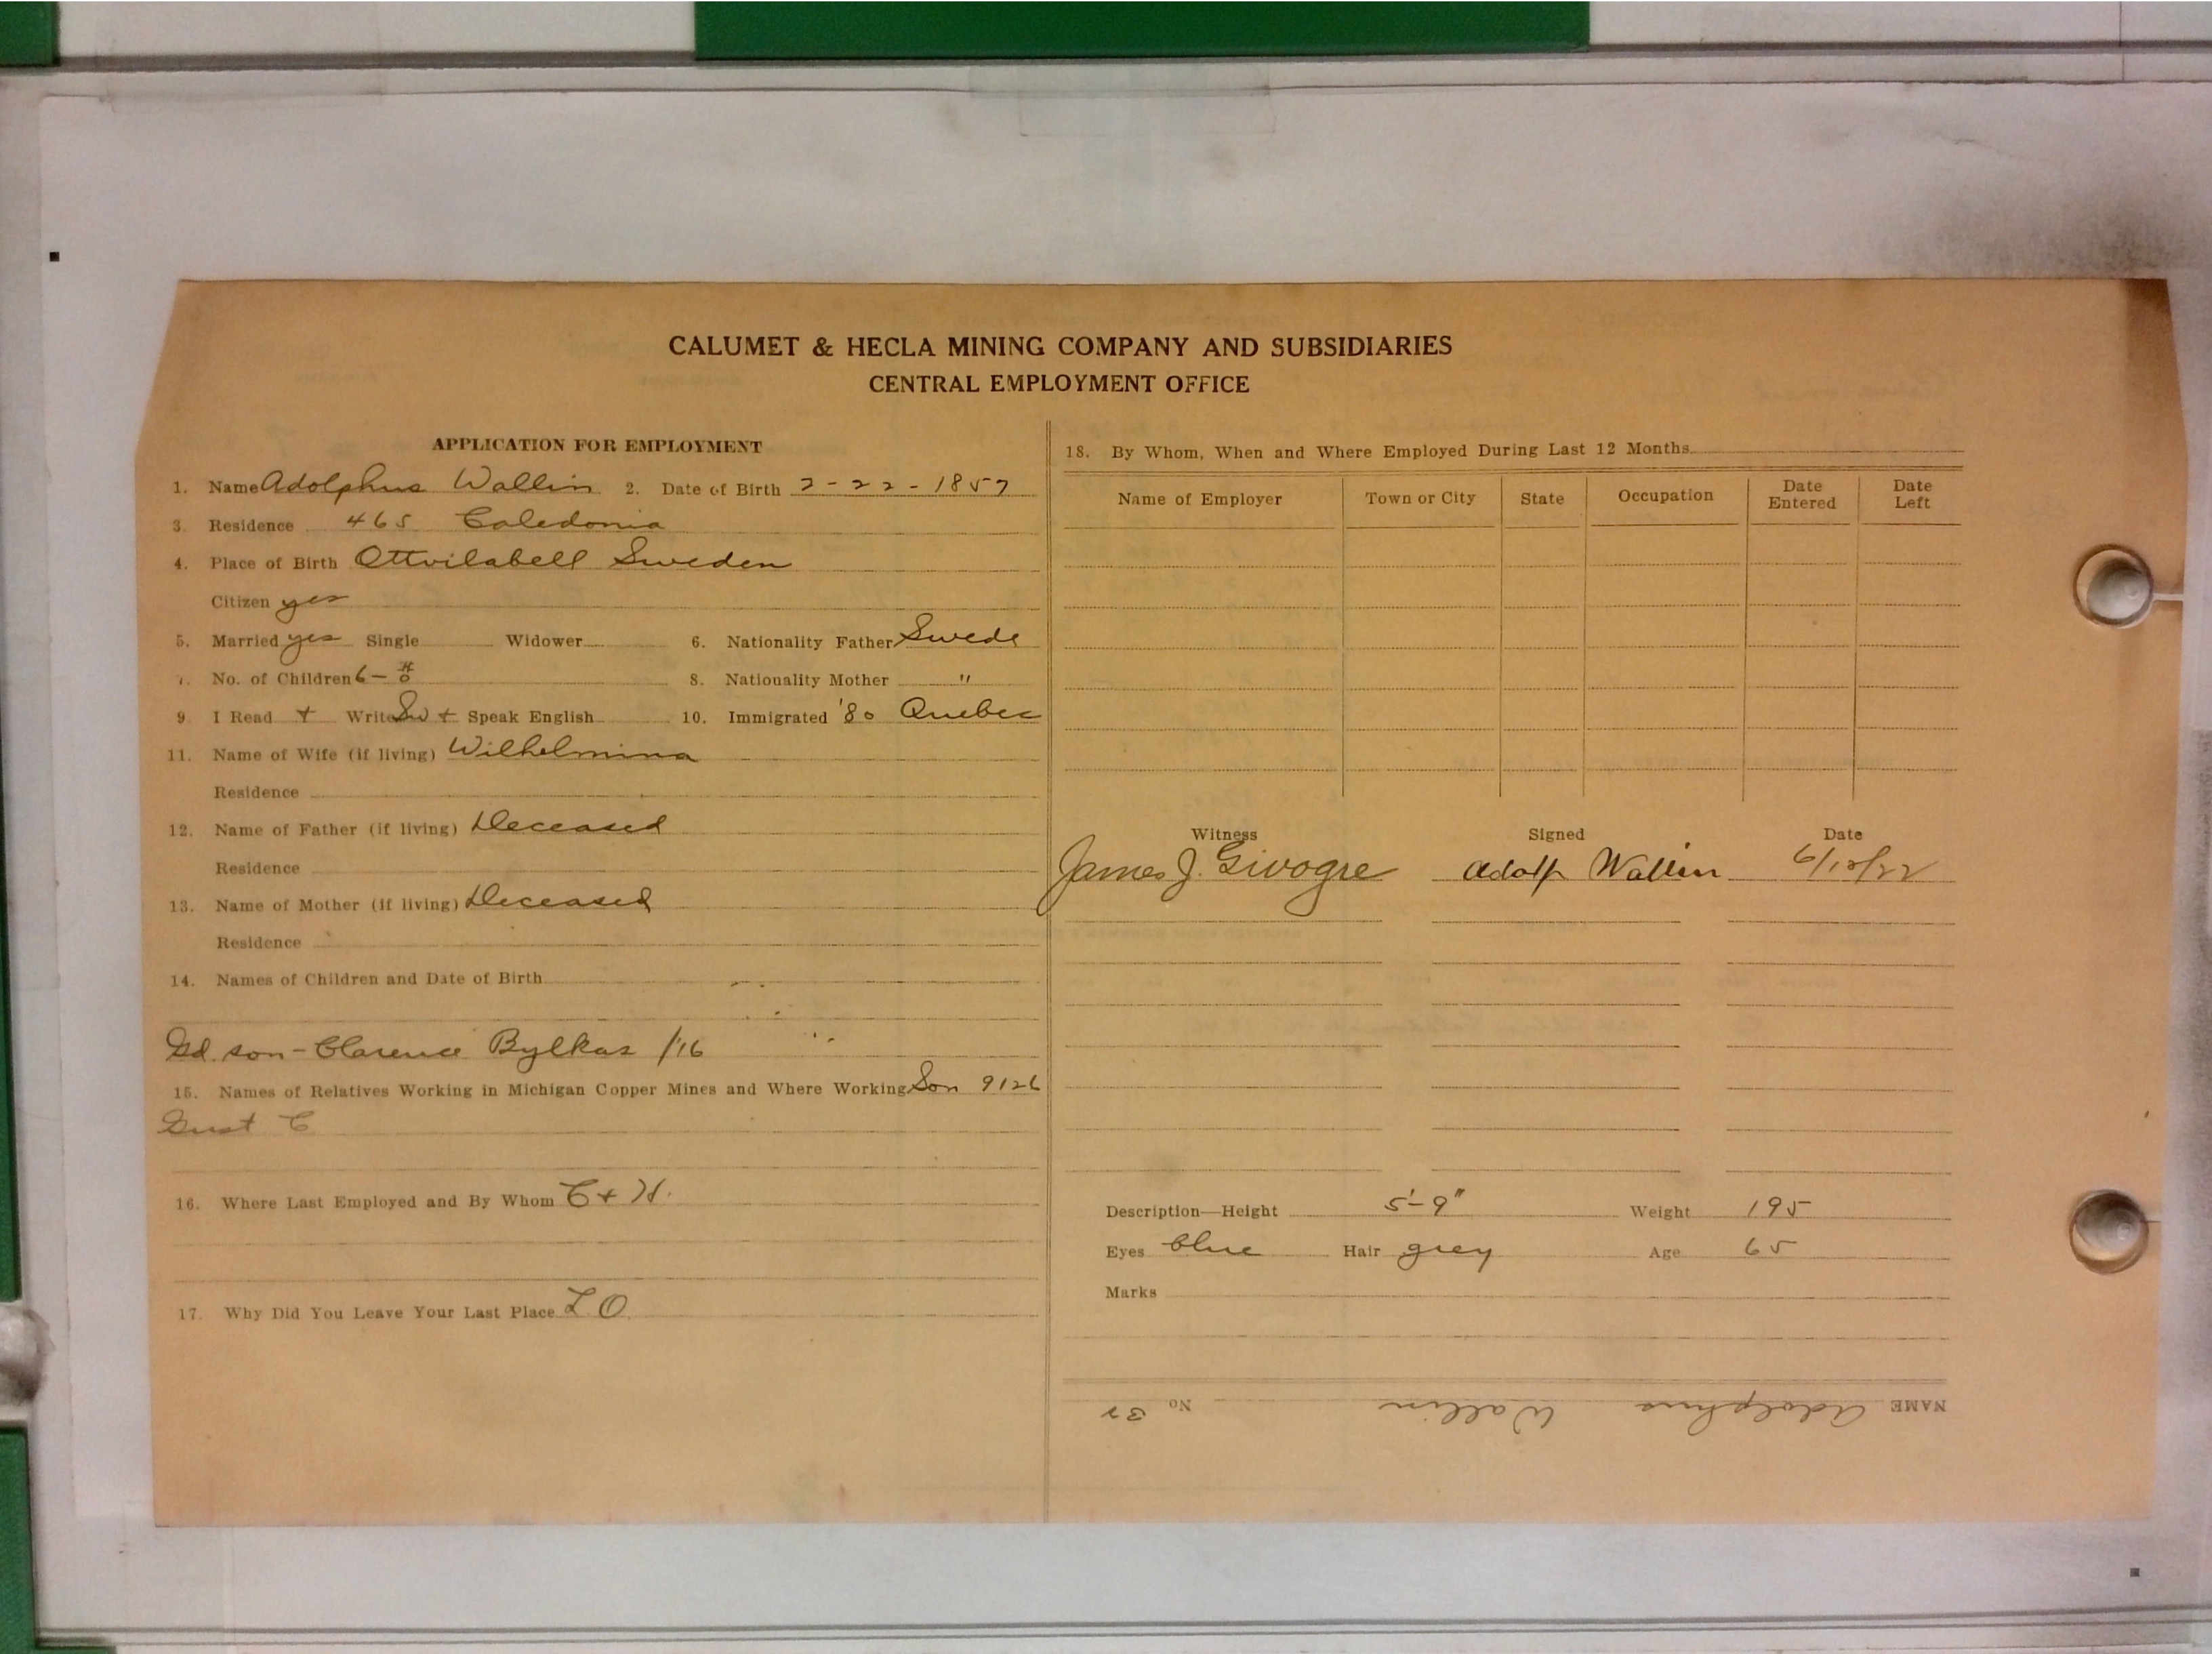 CALUMET & HECLA MINING COMPANY AND SUBSIDIARIES
CENTRAL EMPLOYMENT OFFICE
APPLICATION FOR EMPLOYMENT
1. Name Adolphus Wallin 2. Date of Birth 2-22-1857
3. Residence 465 Caledonia
4. Place of Birth Ottvilabell Sweden
Citizen yes
5. Married yes Single Widower 6. Nationality Father Swede
7. No. of Children 6- 8. Nationality Mother "
9 I Read + Write Sw + Speak English 10. Immigrated '80 Quebec
11. Name of Wife (if living) Wilhelmina
Residence
12. Name of Father (if living) Deceased
Residence
13. Name of Mother (if living) Deceased
Residence
14. Names of Children and Date of Birth
Gd. son - Clarence Bylkas /16
15. Names of Relatives Working in Michigan Copper Mines and Where Working Son 9126
Gust C
16. Where Last Employed and By Whom C + H.
17. Why Did You Leave Your Last Place L O.
18. By Whom, When and Where Employed During Last 12 Months
Name of Employer Town or City State Occupation Date Entered Date Left
Witness Signed Date
James J. Givogre Adolf Wallin 6/12/22
Description—Height 5'-9" Weight 195
Eyes blue Hair grey Age 65
Marks
NAME Adolphus Wallin No